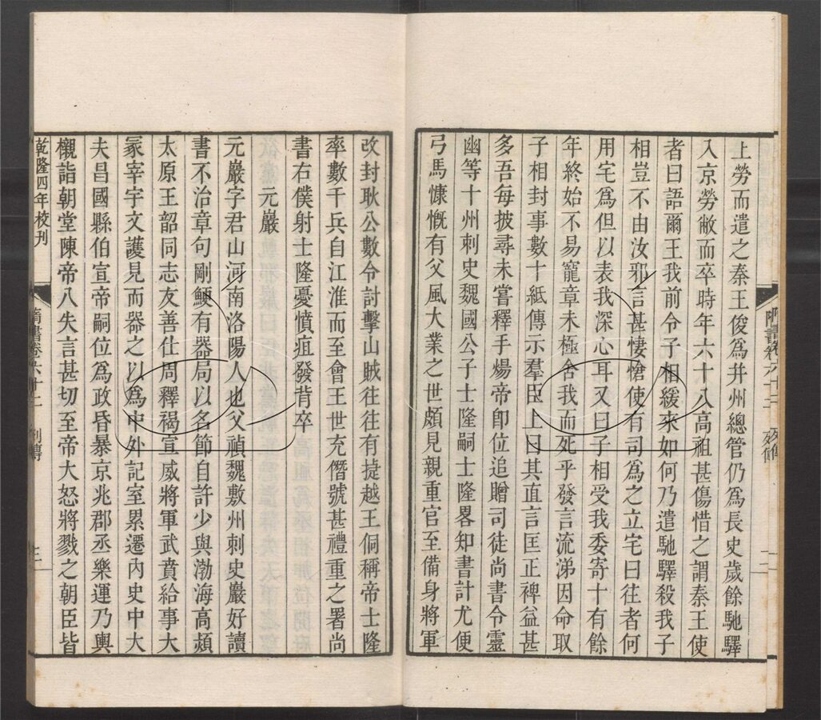 上勞而遣之秦王俊為并州總管仍為長史歲餘馳驛
入京勞敝而卒時年六十八高祖甚傷惜之謂秦王使
者曰語爾王我前令子相緩來如何乃遣馳驛殺我子
相豈不由汝邪言甚悽愴使有司為之立宅曰往者何
用宅為但以表我深心耳又曰子相受我委寄十有餘
年終始不易寵章未極舍我而死乎發言流涕因命取
子相封事數十紙傳示羣臣上曰其直言匡正裨益甚
多吾每披尋未嘗釋手煬帝卽位追贈司徒尚書令靈
幽等十州刺史魏國公子士隆嗣士隆畧知書計尤便
弓馬慷慨有父風大業之世頗見親重官至備身將軍
改封耿公數令討擊山賊往往有捷越王侗稱帝士隆
率數千兵自江淮而至會王世充僭號甚禮重之署尚
書右僕射士隆憂憤疽發背卒
元巖
元巖字君山河南洛陽人也父禎魏敷州刺史巖好讀
書不治章句剛鯁有器局以名節自許少與渤海高熲
太原王韶同志友善仕周釋褐宣威將軍武賁給事大
冢宰宇文護見而器之以為中外記室累遷內史中大
夫昌國縣伯宣帝嗣位為政昏暴京兆郡丞樂運乃輿
櫬詣朝堂陳帝八失言甚切至帝大怒將戮之朝臣皆
乾隆四年校刊
隋書卷六十二
列傳
三